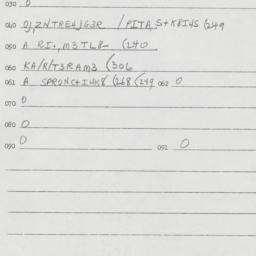 030 0
040 OJ,ZNTREHJG3R /PITA, S+K8I4S (249
050 A RI., M3TL8- (240
060 KA/R/T3RAM3 (306
061 A SPRONC+I4K8 (268 (249 062 0
070 0
080 0
090 0 091 0